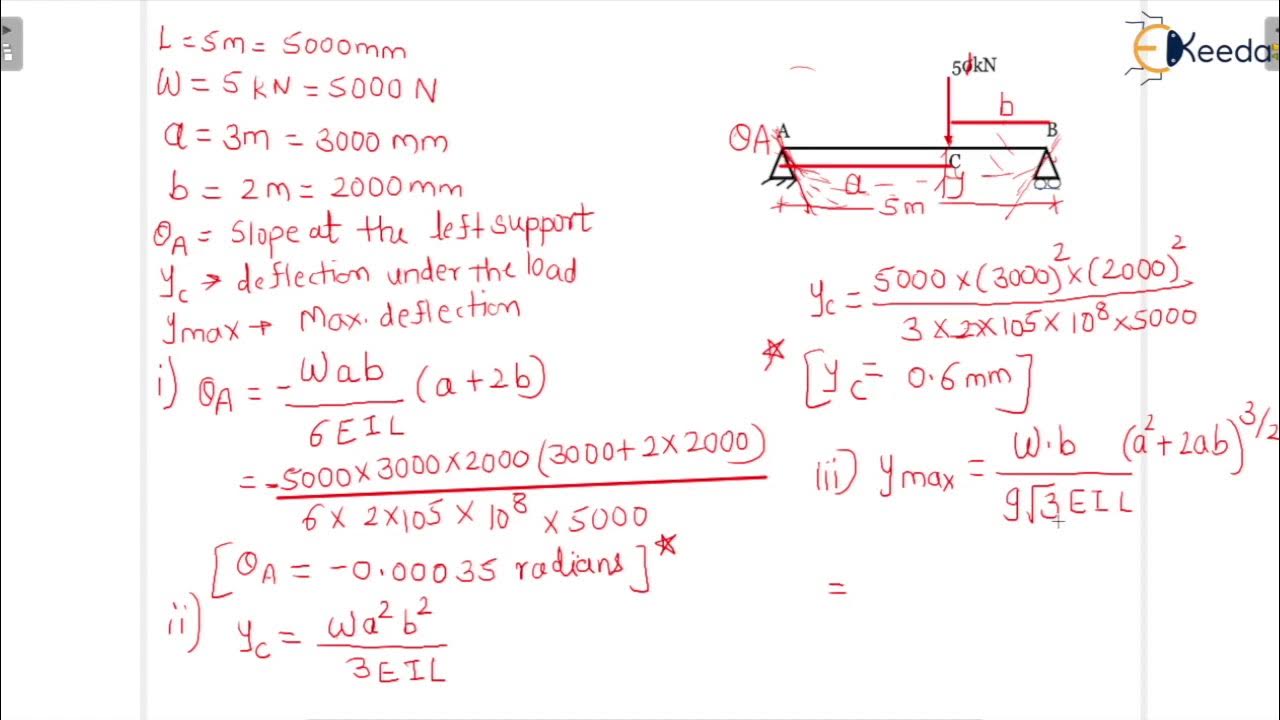 L = 5m = 5000mm
W = 5 kN = 5000 N
a = 3m = 3000 mm
b = 2m = 2000mm
θA = Slope at the left support
yc → deflection under the load
ymax → Max. deflection
i) θA = - Wab / 6EIL (a+2b)
= -5000×3000×2000 (3000+2×2000) / 6 × 2×10^5 × 10^8 × 5000
[θA = -0.00035 radians] *
ii) yc = Wa²b² / 3EIL
Keeda
50kN
b
θA A
B
C
a
y
5m
yc = 5000 × (3000)² × (2000)² / 3 × 2×10^5 × 10^8 × 5000
* [yc = 0.6 mm]
iii) ymax = W.b (a²+2ab)^3/2 / 9√3 EIL
=